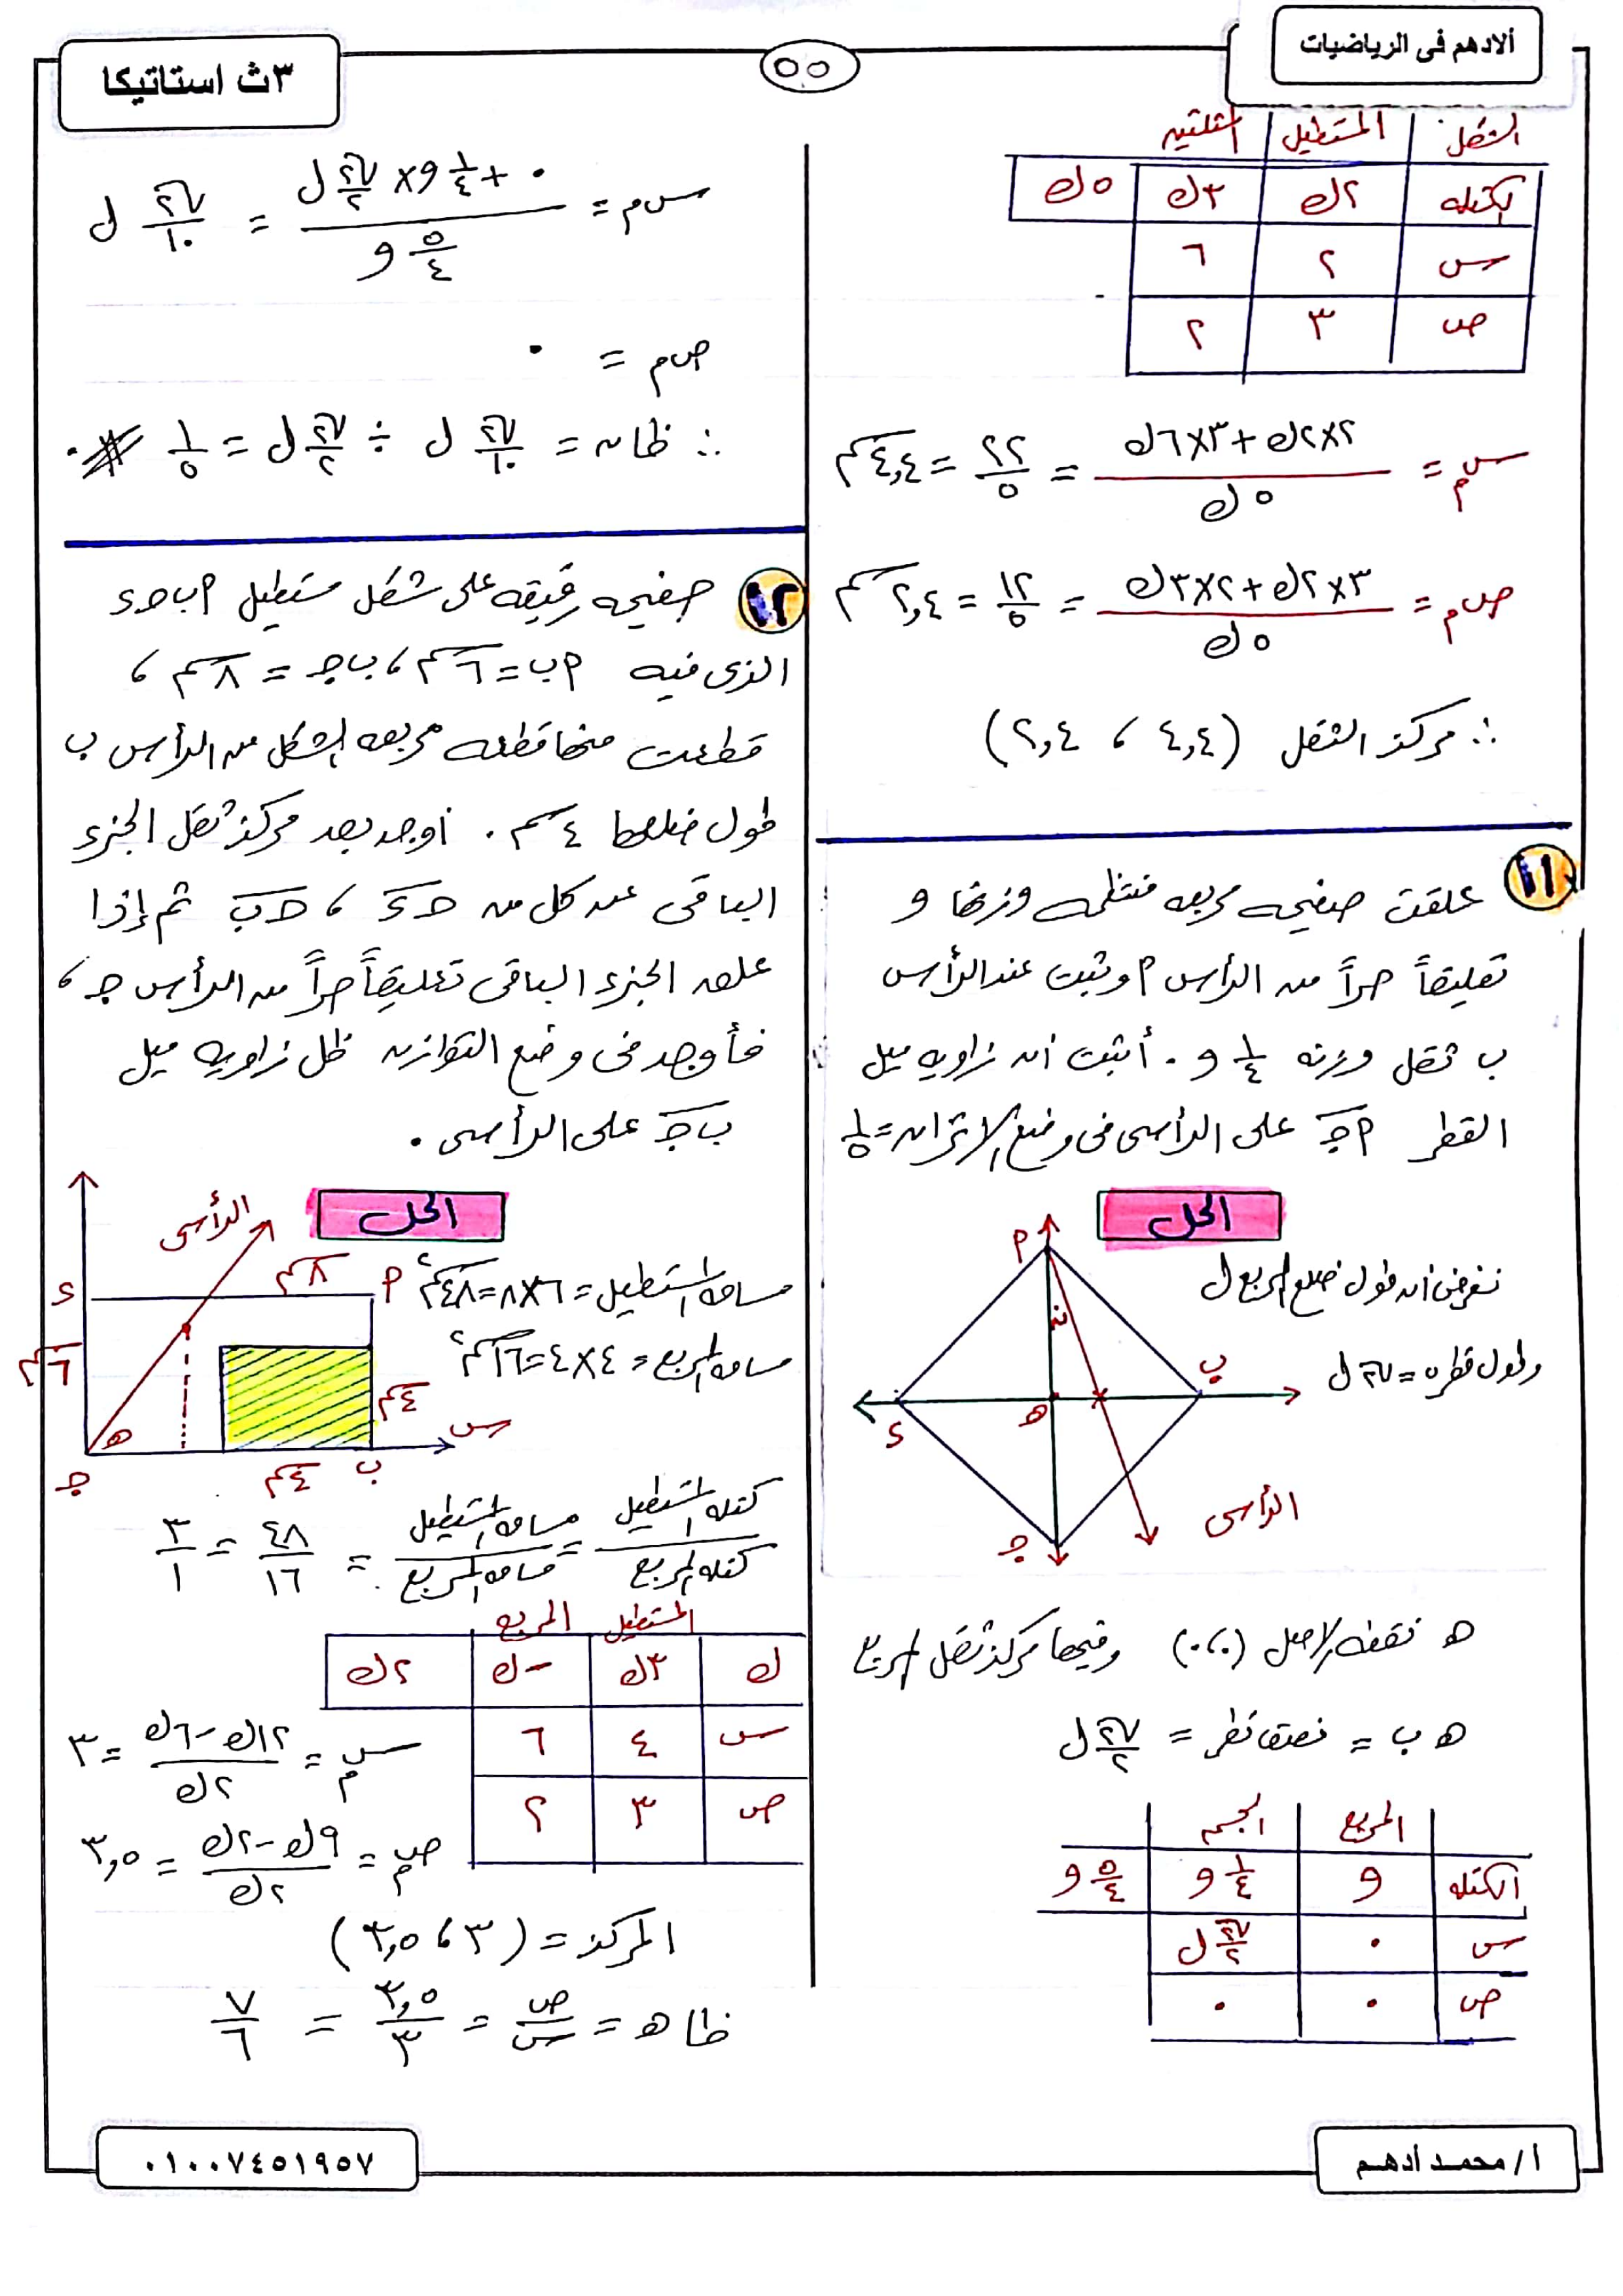 ألادهم فى الرياضيات
٥٥
٣ث استاتيكا
الشكل | المستطيل | المثلثين
الكتله | ٢ك | ٣ك | ٥ك
س | ٢ | ٦
ص | ٣ | ٢
سم = (٢×٢ك + ٣×٦ك) / ٥ك = ٢٢/٥ = ٤,٤ سم
صم = (٣×٢ك + ٢×٣ك) / ٥ك = ١٢/٥ = ٢,٤ سم
∴ مركز الثقل (٤,٤ ، ٢,٤)
١١ علقت صفيحه مربعه منتظمه وزنها و
تعليقاً حراً من الرأس م وثبت عند الرأس
ب ثقل وزنه ١/٤ و . أثبت ان زاويه ميل
القطر مج على الرأسى فى وضع الاتزان = ١/٥
الحل
نفرض ان طول ضلع المربع ل
وطول قطره = √٢ ل
م
ن
ب
ه
د
ج
الرأسى
ه نقطه الاصل (٠،٠) وفيها مركز ثقل المربع
ه ب = نصف قطر = √٢/٢ ل
المربع | الجسم
الكتله | و | ١/٤ و | ٥/٤ و
س | ٠ | √٢/٢ ل
ص | ٠ | ٠
سم = (٠ + ١/٤ و × √٢/٢ ل) / (٥/٤ و) = √٢/١٠ ل
صم = ٠
∴ ظان = √٢/١٠ ل ÷ √٢/٢ ل = ١/٥ #
١٢ صفيحه رقيقه على شكل مستطيل م ب ح د
الذى فيه م ب = ٦ سم ، ب ج = ٨ سم ،
قطعت منها قطعه مربعه الشكل من الرأس ب
طول ضلعها ٤ سم . أوجد بعد مركز ثقل الجزء
الباقى عن كل من حد ، حب ثم إذا
علق الجزء الباقى تعليقاً حراً من الرأس ج ،
فأوجد فى وضع التوازن ظل زاويه ميل
ب ج على الرأسى .
الحل
الرأسى
٨ سم
م
د
٦ سم
٤ سم
س
ه
ج
٤ سم
ب
مساحه المستطيل = ٦×٨ = ٤٨ سم٢
مساحه المربع = ٤×٤ = ١٦ سم٢
كتله المستطيل / كتله المربع = مساحه المستطيل / مساحه المربع = ٤٨/١٦ = ٣/١
المستطيل | المربع
ك | ٣ك | -ك | ٢ك
س | ٤ | ٦
ص | ٣ | ٢
سم = (١٢ك - ٦ك) / ٢ك = ٣
صم = (٩ك - ٢ك) / ٢ك = ٣,٥
المركز = (٣ ، ٣,٥)
ظا ه = ص/س = ٣,٥/٣ = ٧/٦
أ / محمد أدهم
٠١٠٠٧٤٥١٩٥٧